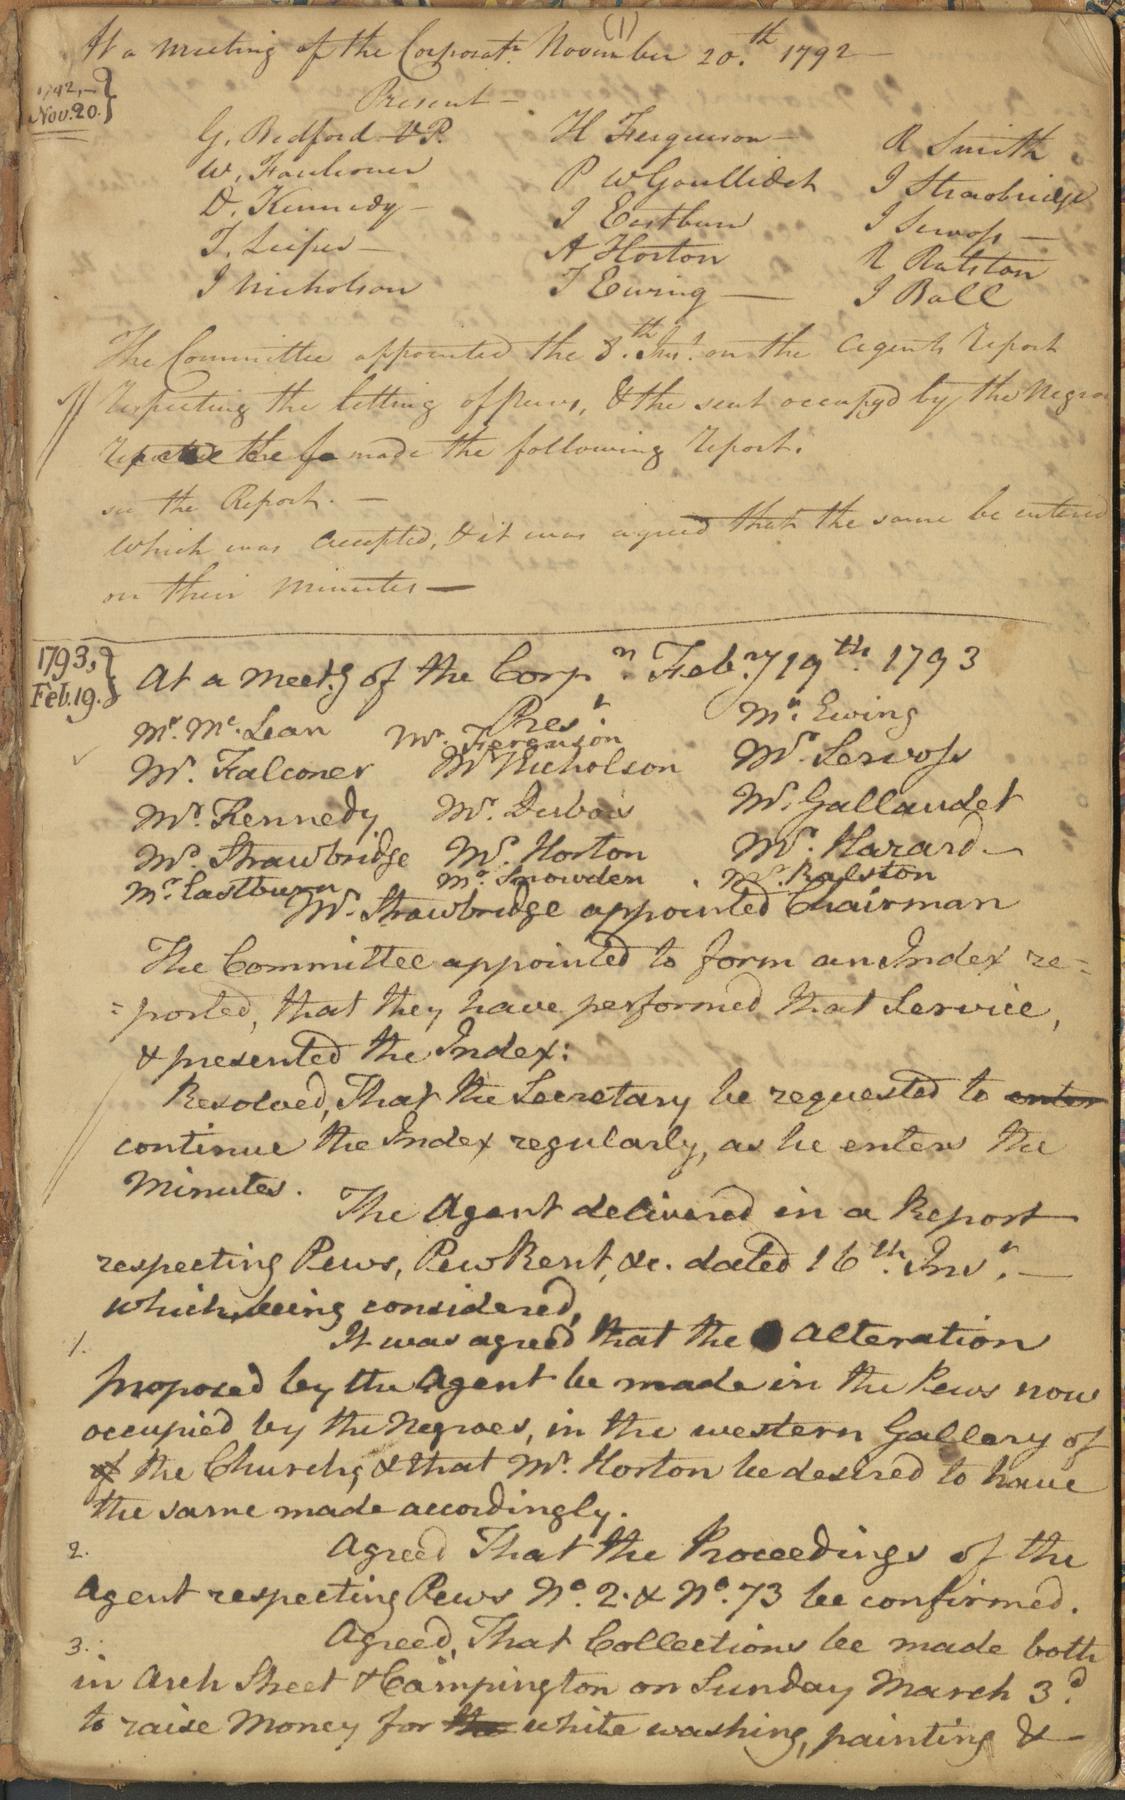 (1)
At a meeting of the Corporatn. November 20.th 1792 —
1792,—
Nov. 20.
Present —
G. Bedford V P. H Ferguson — R Smith
W. Faulconer P W Gaullidet I Strawbridge
D. Kennedy — J Eastburn J Servoss —
T. Leiper — A Horton R Ralston
J Nicholson J Ewing — J Ball
The Committee appointed the 8.th Inst. on the Agents Report
Respecting the letting of pews, & the seat occupyd by the Negroes
made the following Report.
see the Report. —
Which was accepted, & it was agreed that the same be entered
on their Minutes —
1793,
Feb. 19.
At a Meetg. of the Corpn. Febry. 19th. 1793
Prest.
Mr. Mc.Lean Mr. Ferguson Mr. Ewing
Mr. Falconer Mr Nicholson Mr. Servoss
Mr. Kennedy Mr. Dubois Mr. Gallaudet
Mr. Strawbridge Mr. Horton Mr. Hazard —
Mr. Eastburn Mr. Snowden Mr. Ralston
Mr. Strawbridge appointed Chairman
The Committee appointed to form an Index re=
=ported, that they have performed that Service,
& presented the Index:
Resolved, That the Secretary be requested to enter
continue the Index regularly, as he enters the
Minutes.
The Agent delivered in a Report
respecting Pews, Pew Rent, &c. dated 16th. Inst. —
which being considered,
1. It was agreed that the Alteration
proposed by the Agent be made in the Pews now
occupied by the Negroes, in the western Gallery of
of the Church, & that Mr. Horton be desired to have
the same made accordingly.
2. Agreed That the Proceedings of the
Agent respecting Pews No. 2. & No. 73 be confirmed.
3. Agreed, That Collections be made both
in Arch Street & Campington on Sunday March 3d.
to raise Money for the white washing, painting &